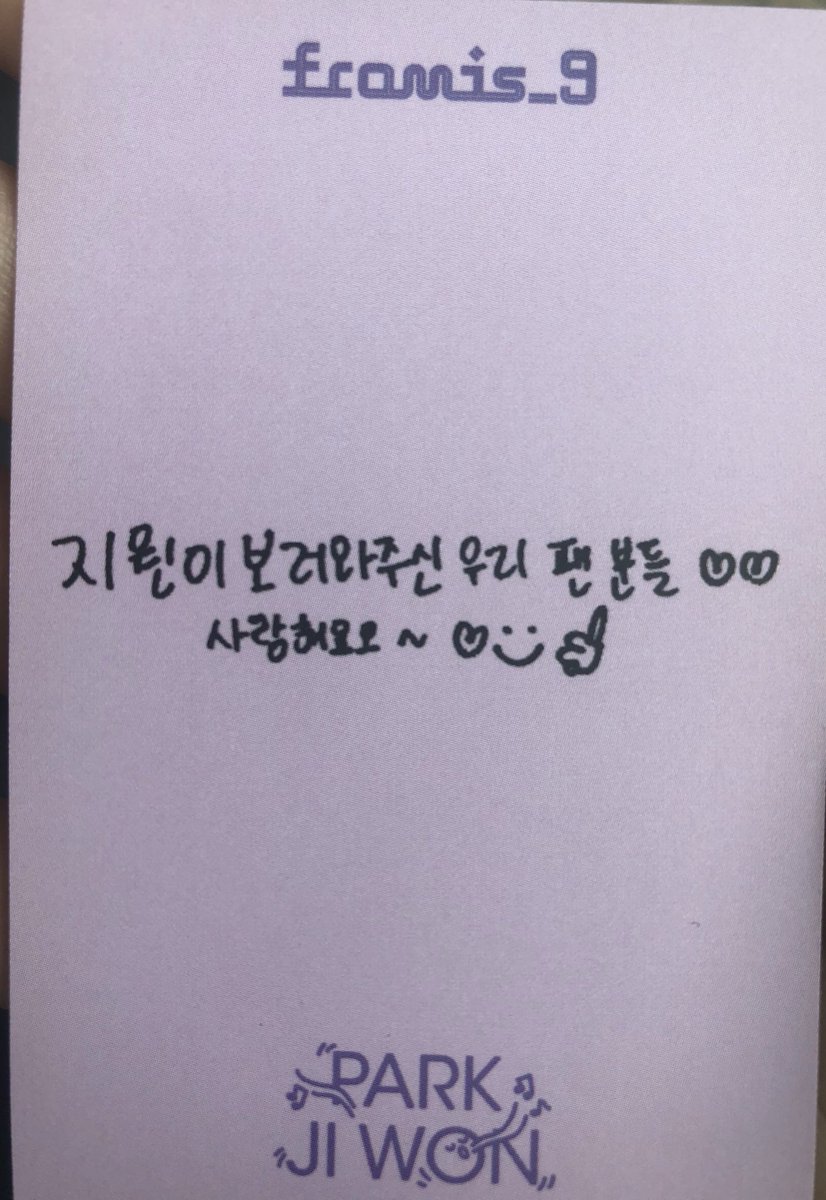 fromis_9
지원이 보러와주신 우리 팬 분들 ♡♡
사랑해요오 ~ ♡
PARK
JI WON